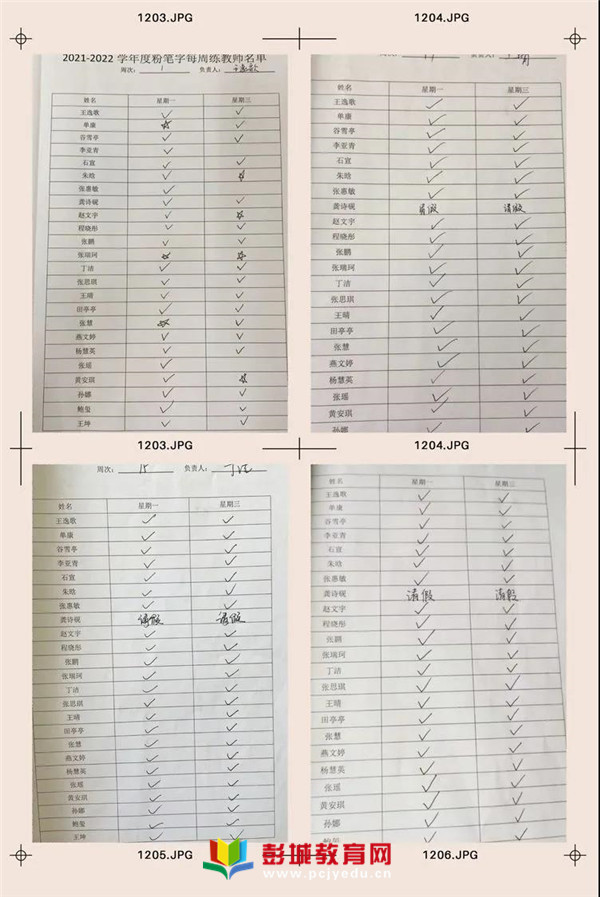 1203.JPG
1204.JPG
2021-2022 学年度粉笔字每周练教师名单
周次: 1 负责人:
姓名 星期一 星期三
王逸歌 ✓ ✓
单康 ☆ ✓
谷雪亭 ✓ ✓
李亚青 ✓
石宣 ✓ ✓
朱晗 ✓ ☆
张惠敏 ✓
龚诗砚 ✓ ✓
赵文宇 ✓ ☆
程晓彤 ✓ ✓
张鹏 ✓ ✓
张瑞珂 ☆ ☆
丁洁 ✓ ✓
张思琪 ✓ ✓
王晴 ✓ ✓
田亭亭 ✓ ✓
张慧 ☆ ✓
燕文婷 ✓ ✓
杨慧英 ✓ ✓
张瑶 ✓
黄安琪 ✓ ☆
孙娜 ✓ ✓
鲍玺 ✓ ✓
王坤 ✓ ✓
姓名 星期一 星期三
王逸歌 ✓ ✓
单康 ✓ ✓
谷雪亭 ✓ ✓
李亚青 ✓ ✓
石宣 ✓ ✓
朱晗 ✓ ✓
张惠敏 ✓ ✓
龚诗砚 请假 请假
赵文宇 ✓ ✓
程晓彤 ✓ ✓
张鹏 ✓ ✓
张瑞珂 ✓ ✓
丁洁 ✓ ✓
张思琪 ✓ ✓
王晴 ✓ ✓
田亭亭 ✓ ✓
张慧 ✓ ✓
燕文婷 ✓ ✓
杨慧英 ✓ ✓
张瑶 ✓ ✓
黄安琪 ✓ ✓
孙娜 ✓ ✓
1203.JPG
1204.JPG
周次: 15 负责人:
姓名 星期一 星期三
王逸歌 ✓ ✓
单康 ✓ ✓
谷雪亭 ✓ ✓
李亚青 ✓ ✓
石宣 ✓ ✓
朱晗 ✓ ✓
张惠敏 ✓ ✓
龚诗砚 请假 请假
赵文宇 ✓ ✓
程晓彤 ✓ ✓
张鹏 ✓ ✓
张瑞珂 ✓ ✓
丁洁 ✓ ✓
张思琪 ✓ ✓
王晴 ✓ ✓
田亭亭 ✓ ✓
张慧 ✓ ✓
燕文婷 ✓ ✓
杨慧英 ✓ ✓
张瑶 ✓ ✓
黄安琪 ✓ ✓
孙娜 ✓ ✓
鲍玺 ✓ ✓
王坤 ✓ ✓
姓名 星期一 星期三
王逸歌 ✓ ✓
单康 ✓ ✓
谷雪亭 ✓ ✓
李亚青 ✓ ✓
石宣 ✓ ✓
朱晗 ✓ ✓
张惠敏 ✓ ✓
龚诗砚 请假 请假
赵文宇 ✓ ✓
程晓彤 ✓ ✓
张鹏 ✓ ✓
张瑞珂 ✓ ✓
丁洁 ✓ ✓
张思琪 ✓ ✓
王晴 ✓ ✓
田亭亭 ✓ ✓
张慧 ✓ ✓
燕文婷 ✓ ✓
杨慧英 ✓ ✓
张瑶 ✓ ✓
黄安琪 ✓ ✓
孙娜 ✓ ✓
1205.JPG
彭城教育网
www.pcjyedu.cn
1206.JPG